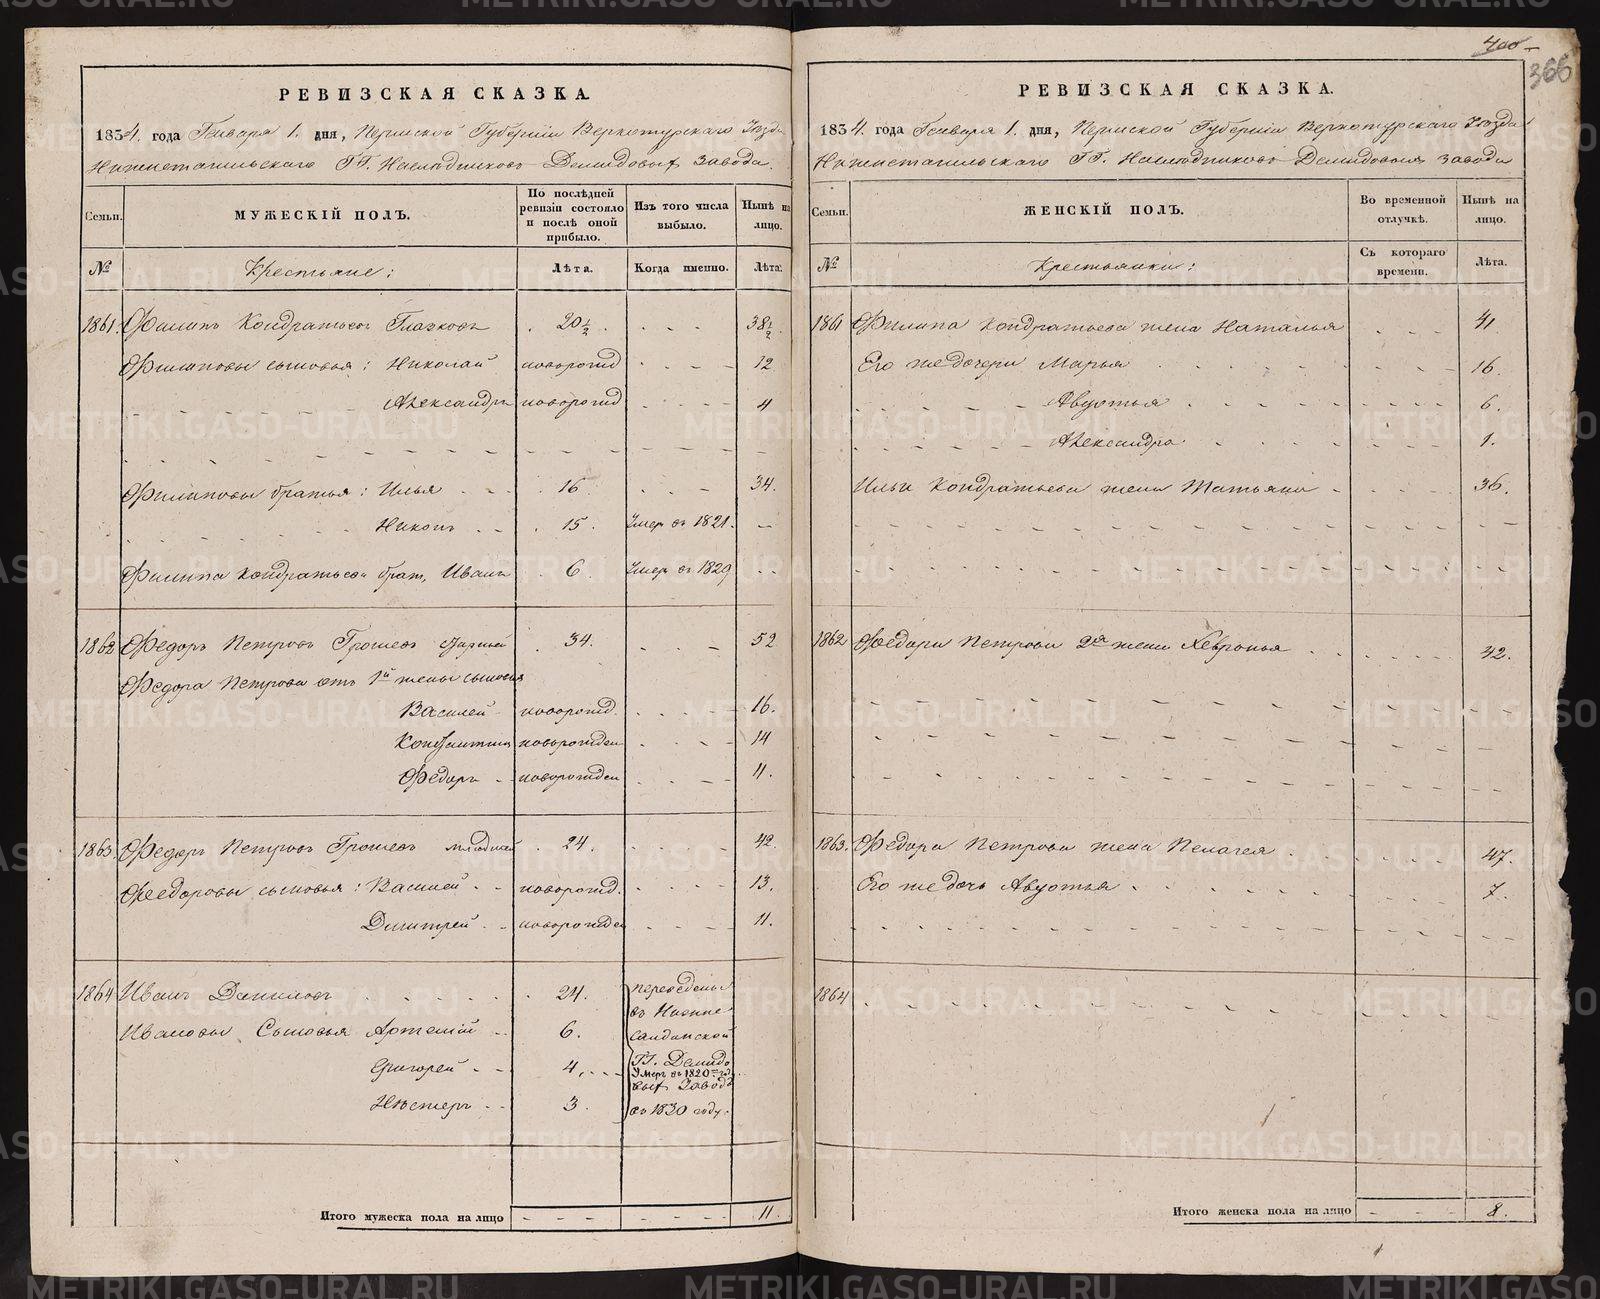 400
366
РЕВИЗСКАЯ СКАЗКА.
1834. года Генваря 1. дня, Пермской Губернiи Верхотурскаго Уѣзда
Нижнетагильскаго ГГ. Наслѣдниковъ Демидовыхъ завода.
Семьи.
МУЖЕСКIЙ ПОЛЪ.
По послѣдней ревизiи состояло и послѣ оной прибыло.
Изъ того числа выбыло.
Нынѣ на лицо.
№
Крестьяне:
Лѣта.
Когда именно.
Лѣта.
1861. Филипъ Кондратьевъ Глазковъ 20½ 38½
Филиповы сыновья: Николай новорожд 12
Александръ новорожд 4
Филиповы братья: Илья 16 34.
Никонъ 15. Умер въ 1821.
Филипа Кондратьева брат, Иванъ 6. Умер въ 1829
1862 Федоръ Петровъ Грошевъ старшей 34. 52
Федора Петрова отъ 1й жены сыновья
Василей новорожд. 16.
Констянтинъ новорожден 14
Федоръ новорожден 11.
1863. Федоръ Петровъ Грошевъ младшей 24. 42.
Федоровы сыновья: Василей новорожд. 13.
Дмитрей новорожден 11.
1864 Иванъ Даниловъ 24. переведены
въ Нижне
Ивановы Сыновья Артемiй 6. салдинской
ГГ. Демидо
Григорей 4. Умеръ въ 1820м год
выхъ Заводъ
Нестеръ 3. въ 1830 году.
Итого мужеска пола на лицо 11.
РЕВИЗСКАЯ СКАЗКА.
1834. года Генваря 1. дня, Пермской Губернiи Верхотурскаго Уѣзда
Нижнетагильскаго ГГ. Наслѣдниковъ Демидовыхъ завода
Семьи.
ЖЕНСКIЙ ПОЛЪ.
Во временной отлучкѣ.
Нынѣ на лицо.
№
Крестьянки:
Съ котораго времени.
Лѣта.
1861 Филипа Кондратьева жена Наталья 41
Его же дочери Марья 16.
Авдотья 6.
Александра 1.
Ильи Кондратьева жена Татьяна 36.
1862 Федора Петрова 2я жена Хевронья 42.
1863. Федора Петрова жена Пелагея 47.
Его же дочь Авдотья 7.
1864
Итого женска пола на лицо 8.
METRIKI.GASO-URAL.RU